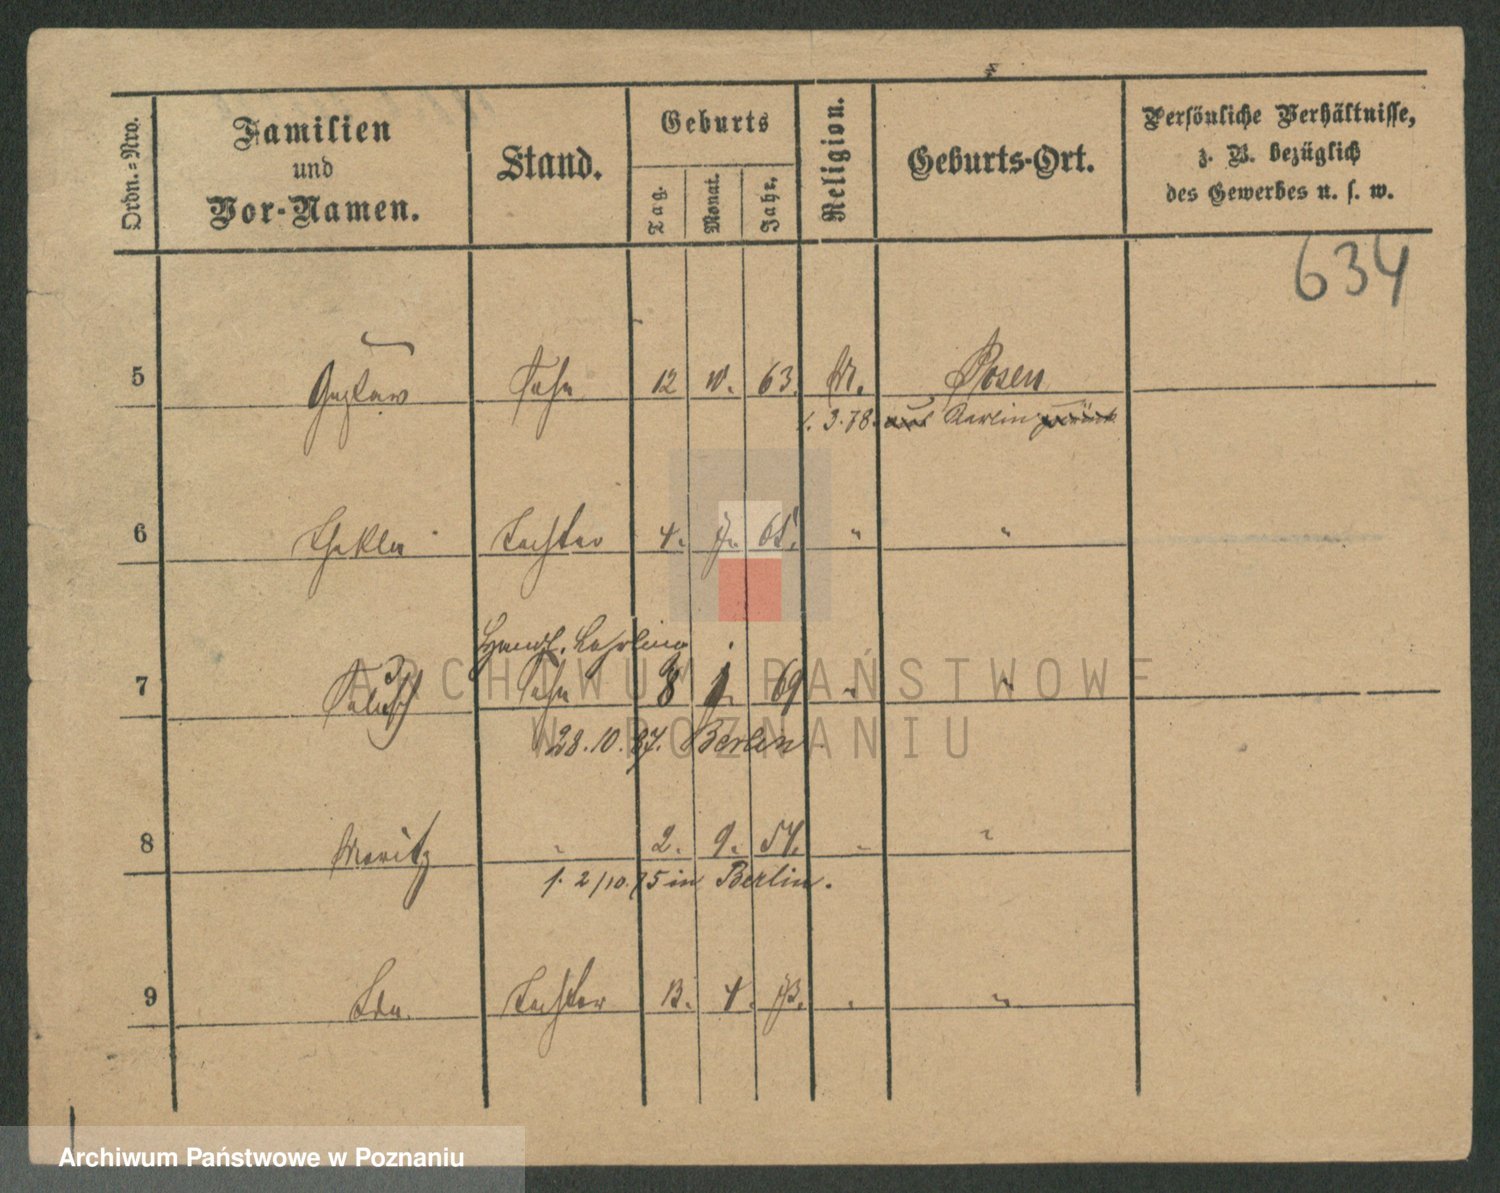 Ordn.-Nro.
Familien
und
Vor-Namen.
Stand.
Geburts
Tag.
Monat.
Jahr.
Religion.
Geburts-Ort.
Persönliche Verhältnisse,
z. B. bezüglich
des Gewerbes u. s. w.
634
5 Gustav Sohn 12 10. 63. M. Posen
1. 3. 78. aus Berlin zurück
6 Thekla Tochter 4. 7. " "
Handl. Lehrling
7 Sohn 8 1. 69 " "
28. 10. 87. Berlin
8 Moritz " 2. 9. 54. " "
1. 2/10. 75 in Berlin.
9 Ida Tochter 13. 4. 73. " "
ARCHIWUM PAŃSTWOWE
W POZNANIU
Archiwum Państwowe w Poznaniu